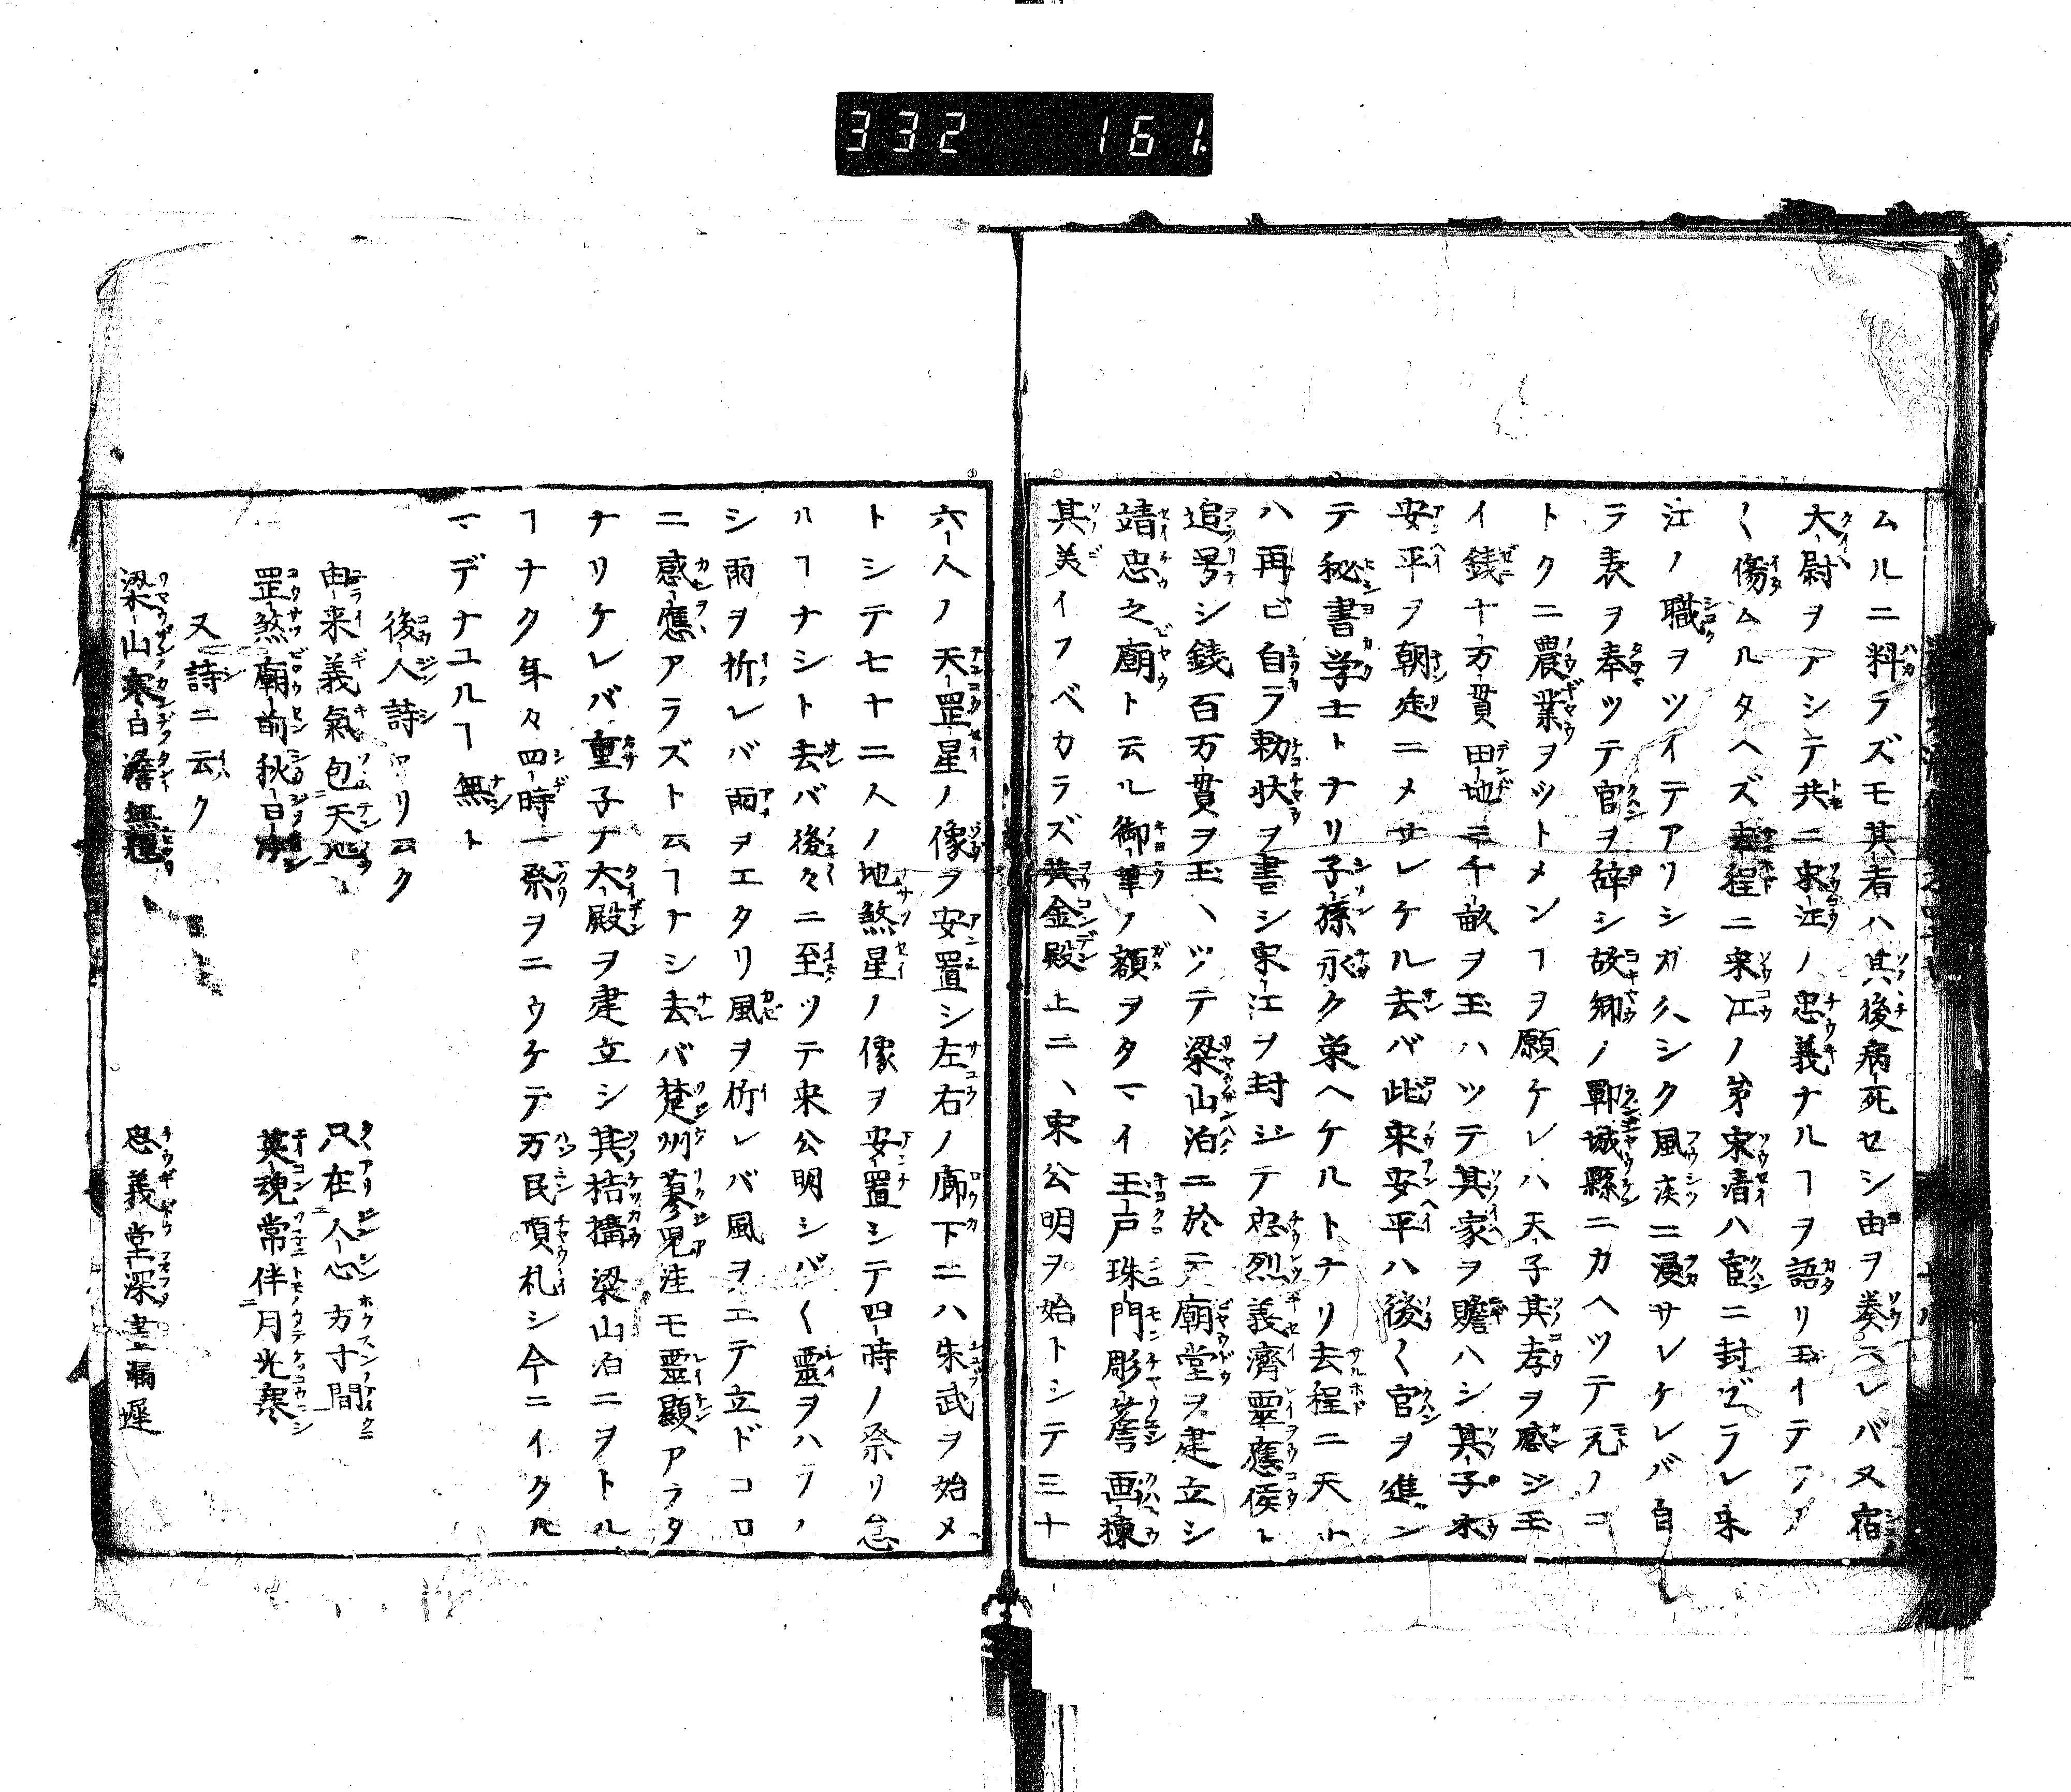 332 161.
ムルニ料ラズモ其者ハ其後病死セシ由ヲ奏スレバ又宿
大尉ヲアシテ共ニ宋江ノ忠義ナルヿヲ語リ玉イテ
〱傷ムルタヘズ 程ニ宋江ノ弟宋清ハ官ニ封ゼラレ宋
江ノ職ヲツイテアリシガ久シク風疾ニ浸サレケレバ自
ラ表ヲ奉ツテ官ヲ辞シ故郷ノ鄆城縣ニカヘツテ元ノコ
トクニ農業ヲツトメンヿヲ願ケレハ天子其孝ヲ感シ玉
イ銭十万貫田地三千畝ヲ玉ハツテ其家ヲ贍ハシ其子宋
安平ヲ朝廷ニメサレケル去バ此宋安平ハ後〱官ヲ進ン
テ秘書学士トナリ子孫永ク栄ヘケルトナリ去程ニ天小
ハ再ビ自ラ勅状ヲ書シ宋江ヲ封ジテ忠烈義濟靈應侯ト
追号シ銭百万貫ヲ玉ハツテ梁山泊ニ於テ廟堂ヲ建立シ
靖忠之廟ト云ル御筆ノ額ヲタマイ玉戸珠門彫簷画棟
其美イフベカラズ黄金殿上ニハ宋公明ヲ始トシテ三十
六人ノ天罡星ノ像ヲ安置シ左右ノ廊下ニハ朱武ヲ始メ
トシテ七十二人ノ地煞星ノ像ヲ安置シテ四時ノ祭リ怠
ルヿナシト去バ後々ニ至ツテ宋公明シバ〱靈ヲハラノ
シ雨ヲ祈レバ雨ヲエタリ風ヲ祈レバ風ヲエテ立ドコロ
ニ感應アラズト云ヿナシ去バ楚州蓼児洼モ靈顕アラタ
ナリケレバ重子ナ大殿ヲ建立シ其結構梁山泊ニヲトル
ヿナク年々四時一祭ヲニウケテ万民頂礼シ今ニイクル
マデナユルヿ無ト
後人詩アリ云ク
由来義氣包天地 只在人心方寸間
罡煞廟前秋日 英魂常伴月光寒
又詩ニ云ク
梁山寒日澹無 忠義堂深晝漏遲